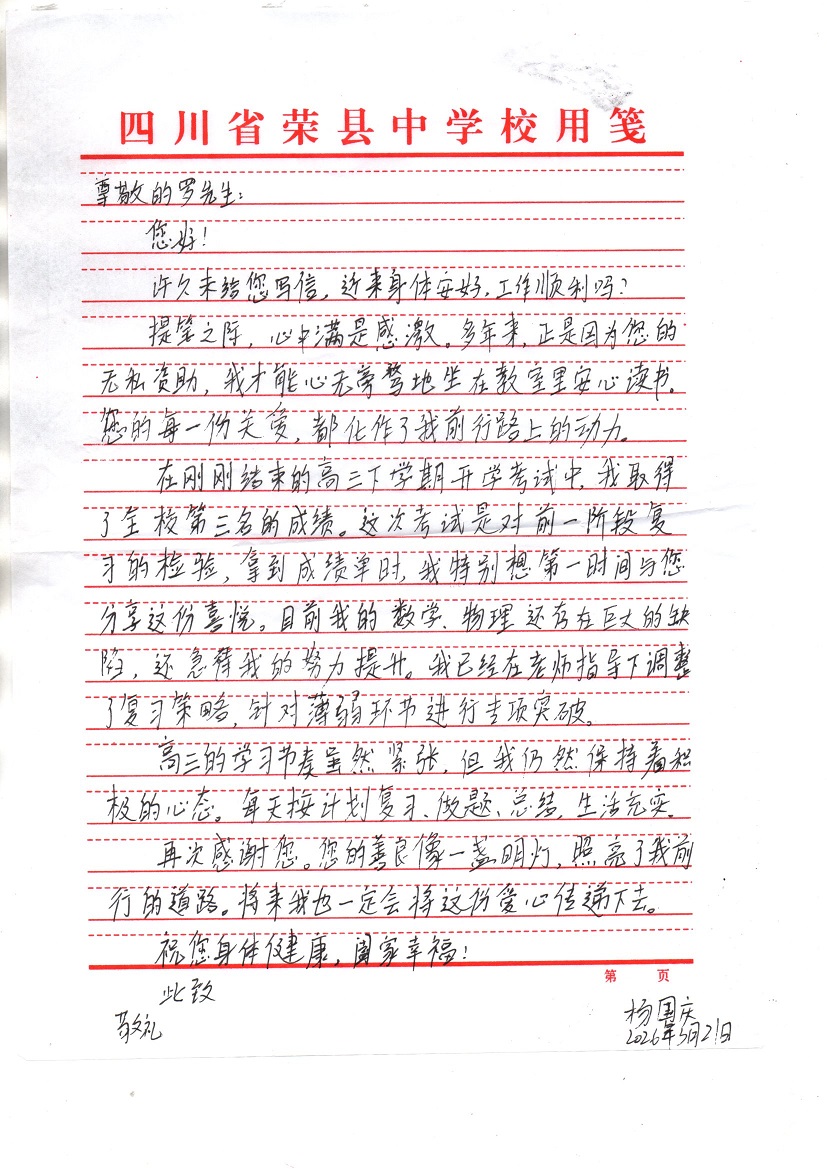 四川省荣县中学校用笺
尊敬的罗先生：
您好！
许久未给您写信，近来身体安好，工作顺利吗？
提笔之际，心中满是感激。多年来，正是因为您的
无私资助，我才能心无旁骛地坐在教室里安心读书。
您的每一份关爱，都化作了我前行路上的动力。
在刚刚结束的高三下学期开学考试中，我取得
了全校第三名的成绩。这次考试是对前一阶段复
习的检验，拿到成绩单时，我特别想第一时间与您
分享这份喜悦。目前我的数学、物理还存在巨大的缺
陷，还急待我的努力提升。我已经在老师指导下调整
了复习策略，针对薄弱环节进行专项突破。
高三的学习节奏虽然紧张，但我仍然保持着积
极的心态。每天按计划复习、做题、总结，生活充实。
再次感谢您。您的善良像一盏明灯，照亮了我前
行的道路。将来我也一定会将这份爱心传递下去。
祝您身体健康，阖家幸福！
第 页
此致
敬礼
杨国庆
2026年5月21日